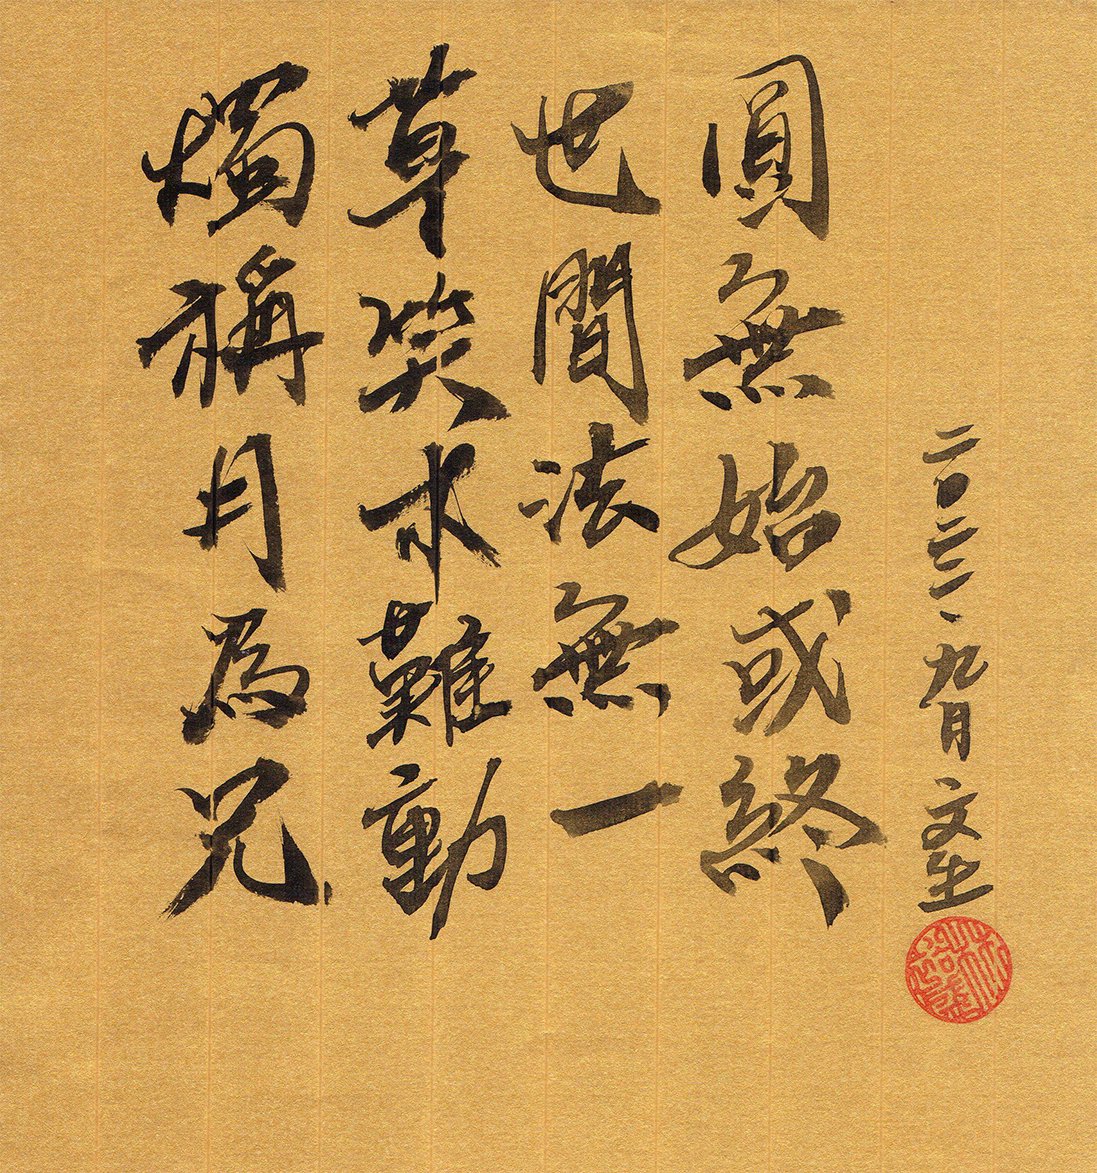 燭稱月為兄
草笑木難動
世間法無一
圓無始或終
二〇二二、九月 文生